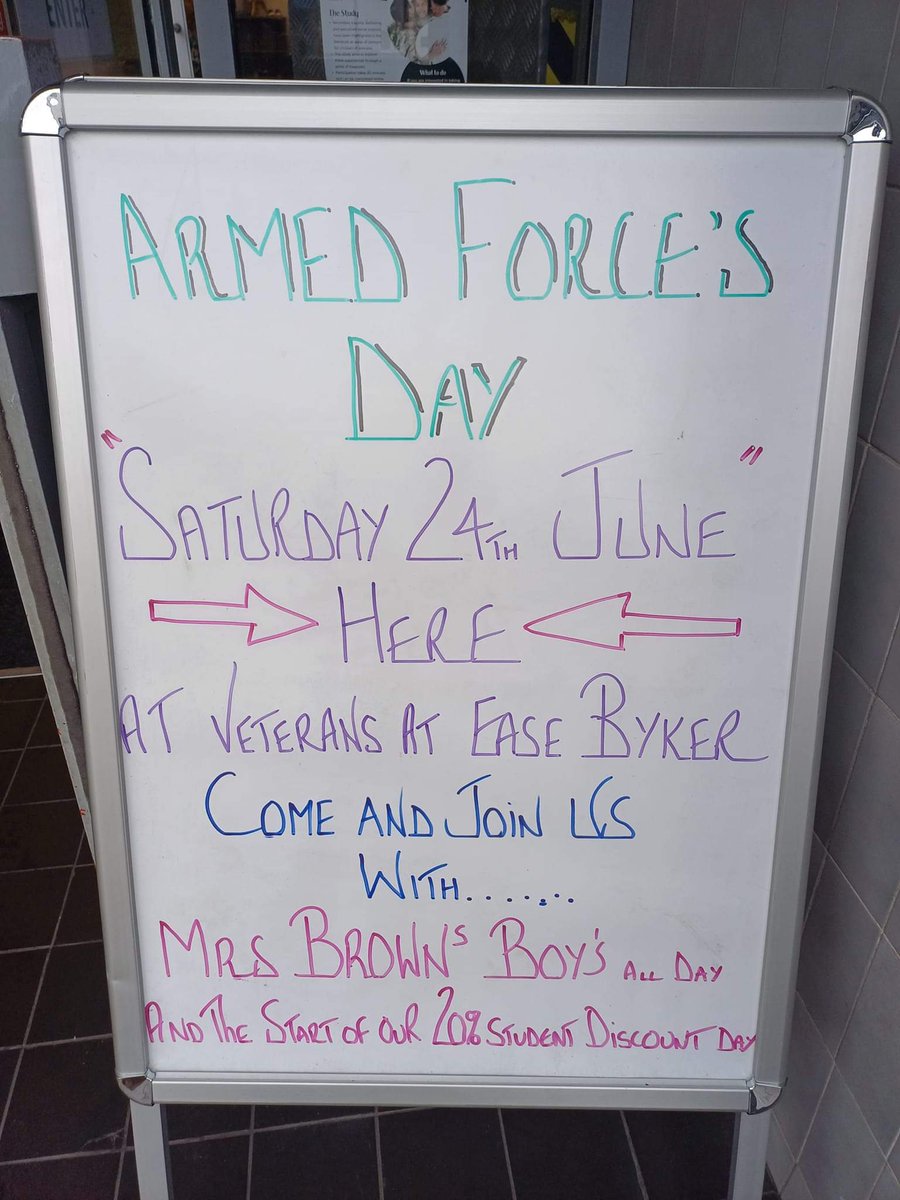 ENTER
The Study
What to do
ARMED FORCE'S
DAY
"SATURDAY 24TH JUNE"
HERE
AT VETERANS AT EASE BYKER
COME AND JOIN US
WITH.......
MRS BROWNS BOY'S ALL DAY
AND THE START OF OUR 20% STUDENT DISCOUNT DAY